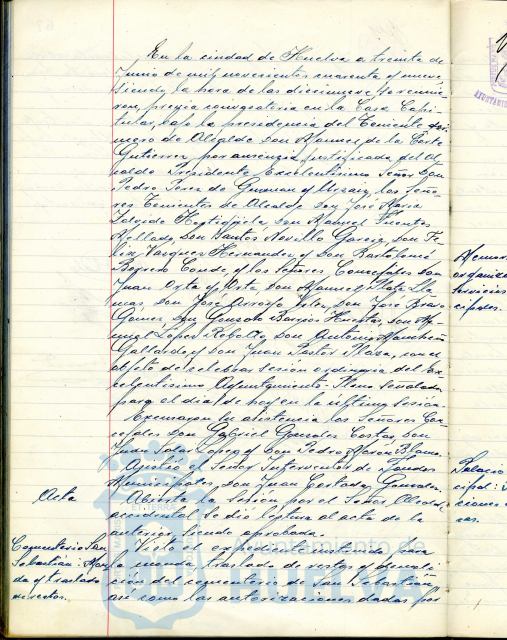 En la ciudad de Huelva a treinta de
Junio de mil novecientos cuarenta y nueve
siendo la hora de las diecinueve se reunie-
ron, previa convocatoria en la Casa Capi-
tular, bajo la presidencia del Teniente pri-
mero de Alcalde Don Manuel de la Corte
Gutierrez, por ausencia justificada del Al-
calde Presidente Excelentísimo Señor Don
Pedro Perez de Guzman y Urzaiz, los Seño-
res Tenientes de Alcalde Don José María
Don Manuel Fuentes
Don Santos Novillo Garcia, Don Fe-
lix Vazquez Hernandez y Don Bartolomé
Borrero Conde, y los Señores Concejales Don
Juan Orta y Orta, Don Manuel Mata Lla-
nas, Don José Arroyo Velez, Don José Bravo
Gomez, Don Gonzalo Barrios Huertas, Don Ma-
nuel López Rebollo, Don Antonio
Gallardo y Don Juan Pastor Plaza, con el
objeto de celebrar sesión ordinaria del Ex-
celentísimo Ayuntamiento Pleno señalada
para el dia de hoy en la última sesión.
Excusaron la asistencia los Señores Con-
cejales Don Gabriel Gonzalez Costas, Don
Juan Solar Lopez y Don Pedro Moron Blanco.
Asistió el Señor Interventor de fondos
Municipales, Don Juan Cortados Gonzalez.
Acta
Abierta la sesión por el Señor Alcalde
accidental se dió lectura al acta de la
anterior siendo aprobada.
Cementerio San
Sebastián: Mon-
da y traslado
de restos.
Visto el expediente instruido para
la monda, traslado de restos y demoli-
ción del cementerio de San Sebastián,
así como las autorizaciones dadas por
organiza
servicios
cipales.
Palacio
cipal:
ciones
ras.
Ayuntamiento de
HUELVA
ET TERRA